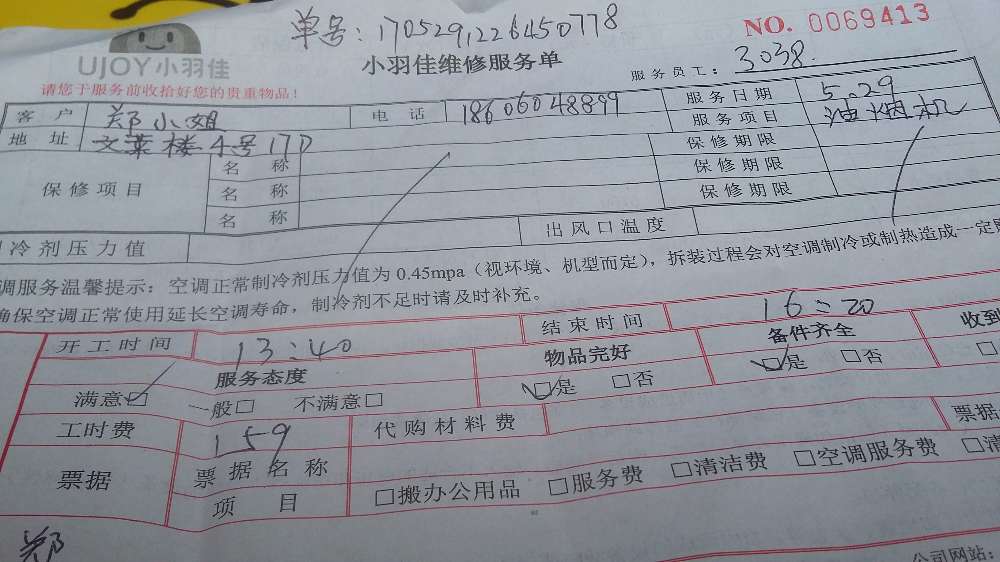 单号:170529,226450778
NO. 0069413
UJOY小羽佳
小羽佳维修服务单
服务员工: 3038.
请您于服务前收拾好您的贵重物品!
客户 郑小姐 电话 18606048899 服务日期 5.29
地址 文莱楼4号17D 服务项目 油烟机
保修项目 名称 保修期限
名称 保修期限
名称 保修期限
冷剂压力值 出风口温度
调服务温馨提示:空调正常制冷剂压力值为0.45mpa(视环境、机型而定),拆装过程会对空调制冷或制热造成一定
确保空调正常使用延长空调寿命,制冷剂不足时请及时补充。
开工时间 13:40 结束时间 16:20
服务态度 物品完好 备件齐全 收到
满意☑ 一般□ 不满意□ ☑是 □否 ☑是 □否 □
工时费 159 代购材料费
票据 票据名称 票据
项目 □搬办公用品 □服务费 □清洁费 □空调服务费 □清
郑
公司网站: